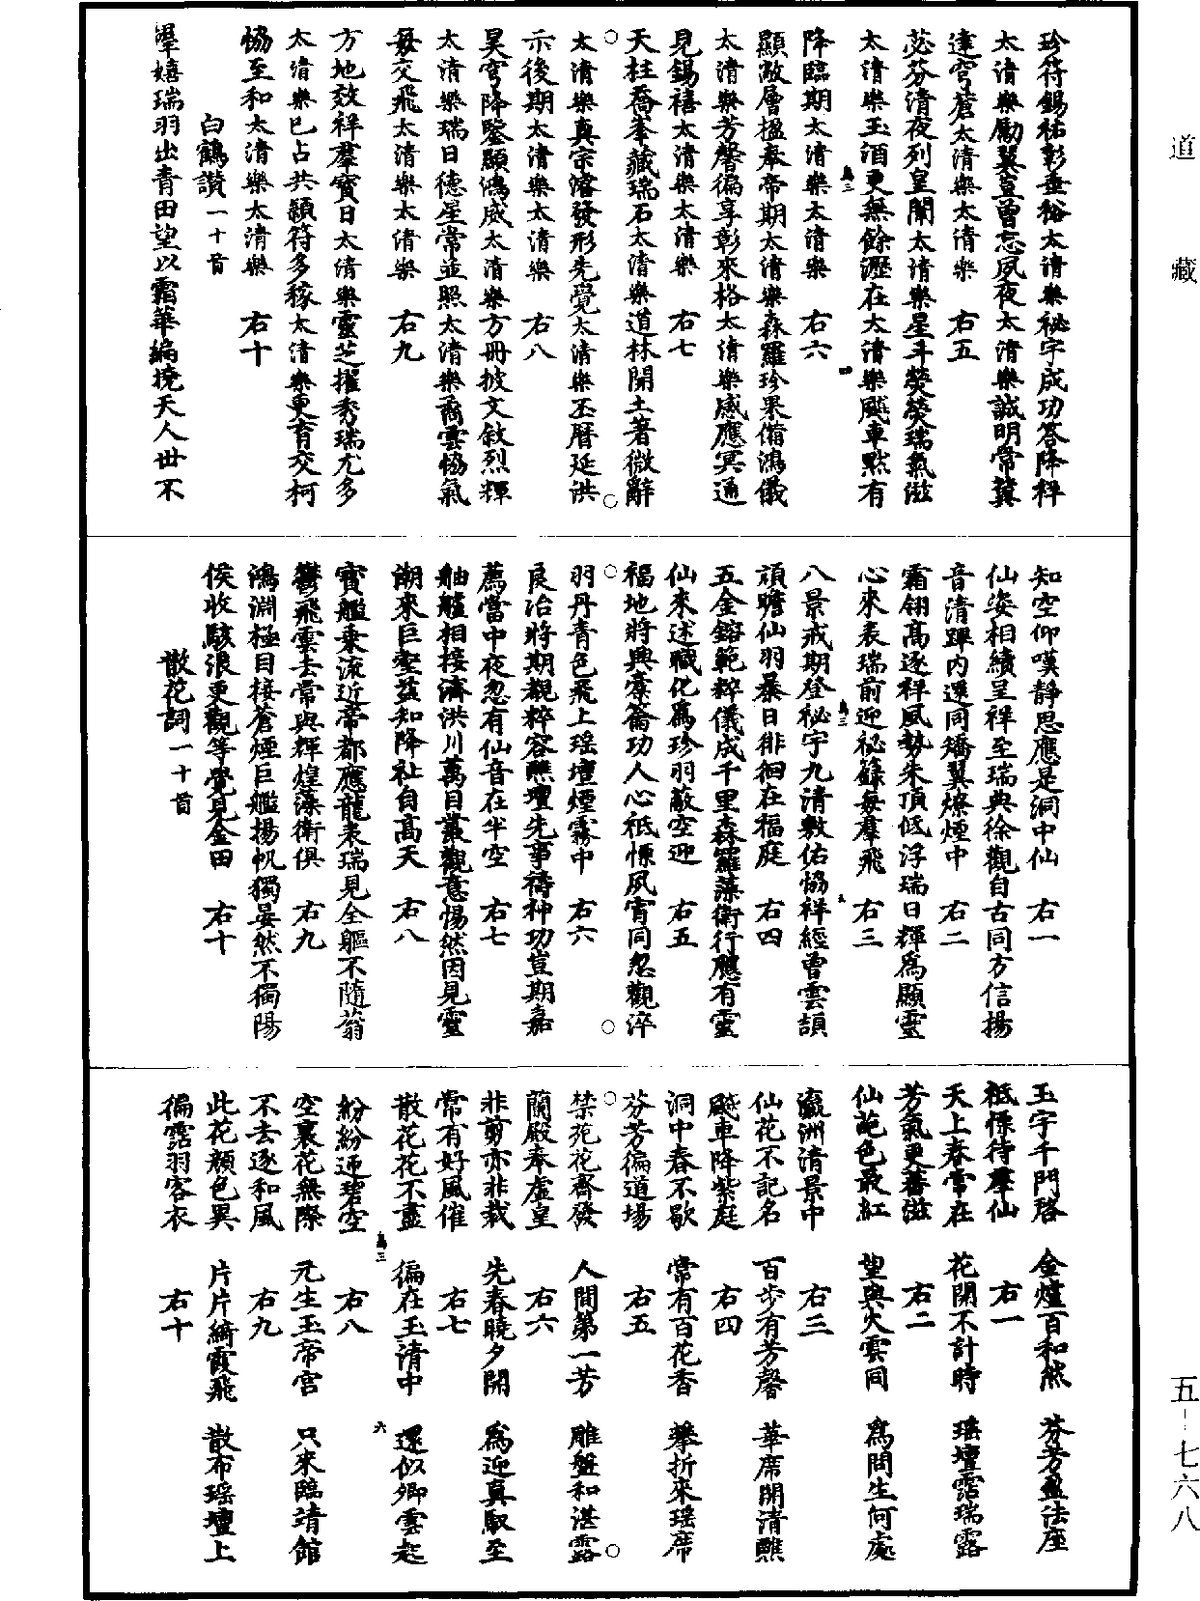 道藏
珍符錫祐彰垂裕太清樂秘宇成功答降釋
太清樂勵翼豈曾忘夙夜太清樂誠明常冀
達穹蒼太清樂太清樂　右五
苾芬清夜列皇闈太清樂星斗熒熒瑞氣滋
太清樂玉酒更無餘瀝在太清樂飈車黙有
降臨期太清樂太清樂　右六
顯敞層楹奉帝期太清樂森羅珍果備鴻儀
太清樂芳馨徧享彰來格太清樂感應冥通
見錫禧太清樂太清樂　右七
天柱喬峯藏瑞石太清樂道林開土著微辭
太清樂真宗濬發形先覺太清樂丕曆延洪
示後期太清樂太清樂　右八
昊穹降鑒顯鴻威太清樂方冊披文敘烈輝
太清樂瑞日德星常並照太清樂喬雲恊氣
每交飛太清樂太清樂　右九
方地效祥羣寶日太清樂靈芝擢秀瑞尤多
太清樂已占共穎符多稼太清樂更育交柯
恊至和太清樂太清樂　右十
白鶴讚一十首
㲯嬉瑞羽出青田望以霜華編撓天人世不
知空仰嘆靜思應是洞中仙　右一
仙姿相續呈祥至瑞典徐觀自古同方信揚
音清蹕内還同矯翼燎煙中　右二
霜翎高逐祥風勢朱頂低浮瑞日輝為顯靈
心來表瑞前迎祕籙每羣飛　右三
八景戒期登秘宇九清敷佑恊祥經曾雲頡
頏瞻仙羽暴日徘徊在福庭　右四
五金鎔範粹儀成千里森羅藻衛行應有靈
仙來述職化為珍羽蔽空迎　右五
福地將興橐籥功人心祗慄夙宵同忽觀淬
羽丹青色飛上瑶壇煙霧中　右六
良冶將期觀粹容醮壇先事禱神功豈期嘉
薦當中夜忽有仙音在半空　右七
舳艫相接濟洪川萬目叢觀意惕然因見靈
潮來巨壑益知降祉自高天　右八
寶艦乗流近帝都應龍表瑞見全軀不隨蓊
鬱飛雲去常與輝煌藻衛俱　右九
鴻淵極目接蒼煙巨艦揚帆獨晏然不獨陽
侯收駭浪更觀等覺見金田　右十
散花詞一十首
玉宇千門啓　金爐百和然　芬芳盈法座
祗慄待羣仙　右一
天上春常在　花開不計時　瑶壇霑瑞露
芳氣更蕃滋　右二
仙葩色最紅　望與火雲同　為問生何處
瀛洲清景中　右三
仙花不記名　百步有芳馨　華席開清醮
飈車降紫庭　右四
洞中春不歇　常有百花香　攀折來瑶席
芬芳徧道場　右五
禁苑花齊發　人間第一芳　雕盤和湛露
蘭殿奉虛皇　右六
非剪亦非栽　先春曉夕開　為迎真馭至
常有好風催　右七
散花花不盡　徧在玉清中　還似卿雲起
紛紛逗碧空　右八
空裏花無際　元生玉帝宫　只來臨靖館
不去逐和風　右九
此花顏色異　片片綺霞飛　散布瑶壇上
徧霑羽客衣　右十
五－七六八